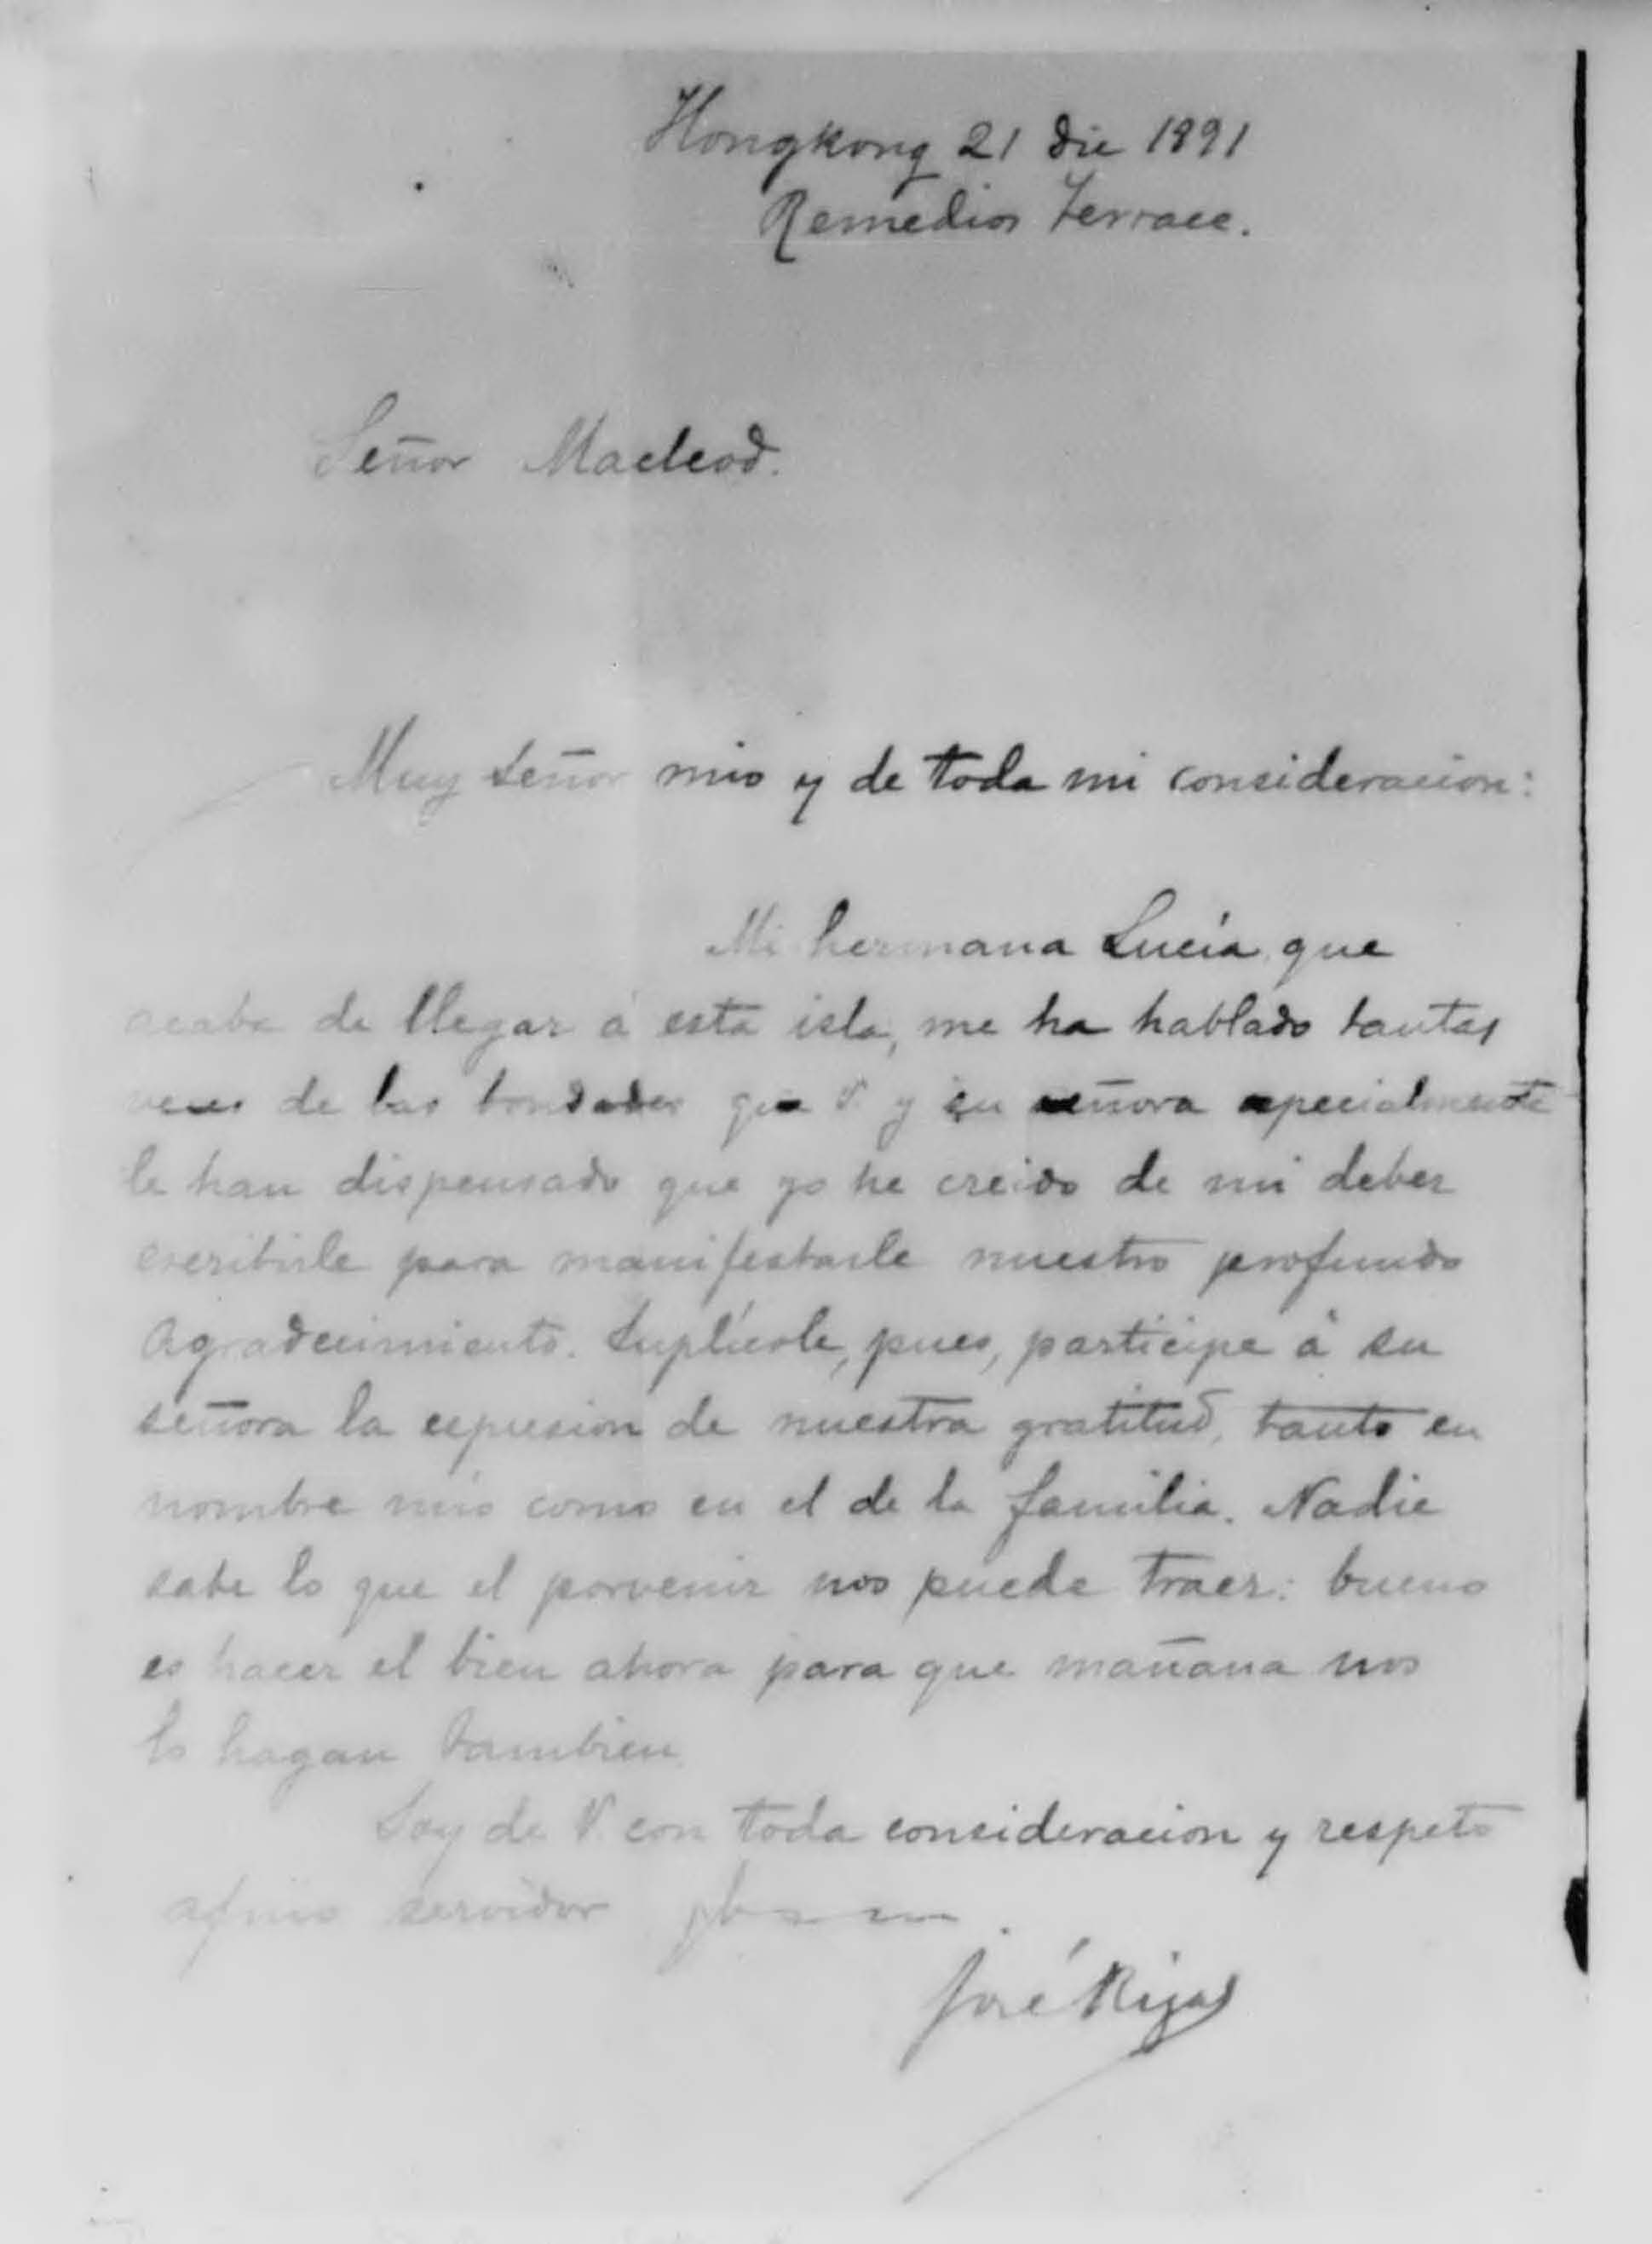 Hongkong 21 Dic 1891
Remedios Terrace.
Señor Macleod.
Muy Señor mio y de toda mi consideracion:
Mi hermana Lucía, que
acaba de llegar á esta isla, me ha hablado tantas
veces de las bondades que V. y su señora especialmente
le han dispensado que yo he creido de mi deber
escribirle para manifestarle nuestro profundo
agradecimiento. Suplícole, pues, participe á su
señora la espresion de nuestra gratitud, tanto en
nombre mio como en el de la familia. Nadie
sabe lo que el porvenir nos puede traer: bueno
es hacer el bien ahora para que mañana nos
lo hagan tambien.
Soy de V. con toda consideracion y respeto
afmo servidor
José Rizal